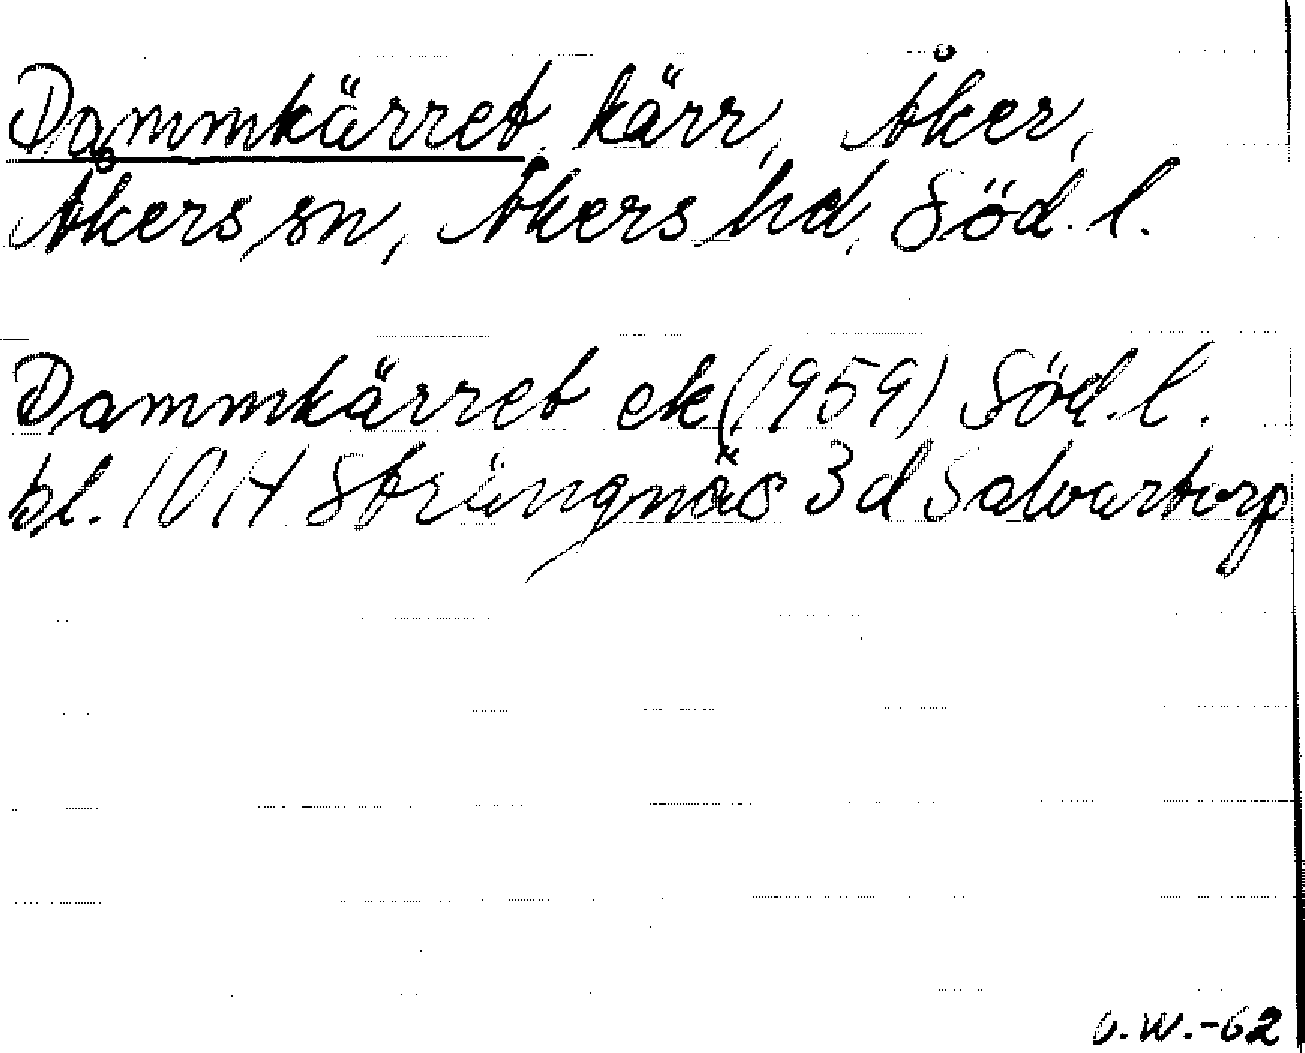 Dammkärret, kärr, Åker,
Åkers sn, Åkers hd, Söd. l.
Dammkärret ek (1959) Söd. l.
bl. 10 H Strängnäs 3 d Salvartorp
O.W.-62